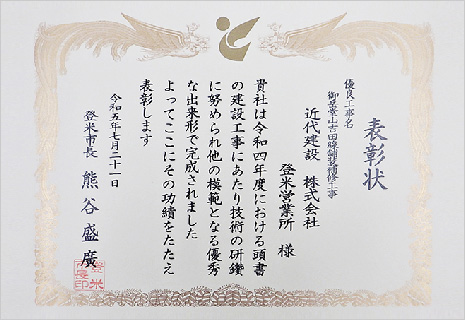 表彰状
優良工事名
近代建設 株式会社
登米営業所 様
貴社は令和四年度における頭書
の建設工事にあたり技術の研鑽
に努められ他の模範となる優秀
な出来形で完成されました
よってここにその功績をたたえ
表彰します
令和五年七月二十一日
登米市長 熊谷盛廣